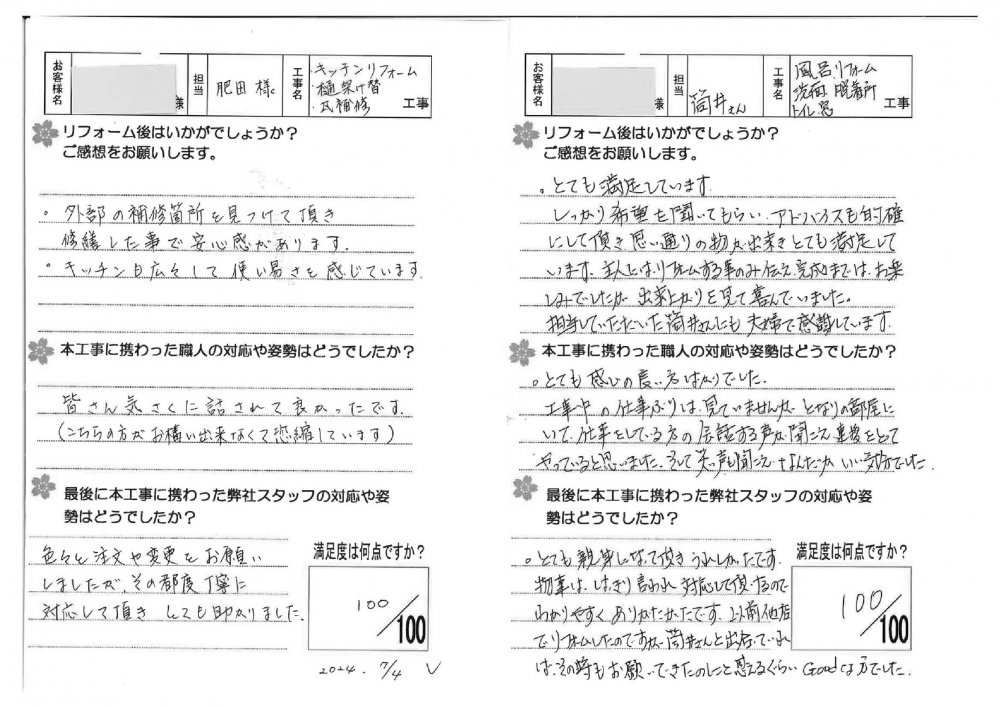 お客様名
様
担当
肥田 様
工事名
・キッチンリフォーム
・樋架け替
・瓦補修
工事
リフォーム後はいかがでしょうか?
ご感想をお願いします。
。外部の補修箇所を見つけて頂き
修繕した事で安心感があります.
。キッチンも広々して使い易さを感じています.
本工事に携わった職人の対応や姿勢はどうでしたか?
皆さん気さくに話されて良かったです.
(こちらの方がお構い出来なくて恐縮しています)
最後に本工事に携わった弊社スタッフの対応や姿
勢はどうでしたか?
色々と注文や変更をお願い
しましたが、その都度丁寧に
対応して頂き とても助かりました.
満足度は何点ですか?
100/100
2024. 7/4
お客様名
様
担当
筒井さん
工事名
風呂リフォーム
洗面、脱着所
トイレ、窓
工事
リフォーム後はいかがでしょうか?
ご感想をお願いします。
。とても満足しています.
しっかり希望を聞いてもらい、アドバイスも的確
にして頂き思い通りの物が出来きとても満足して
います. 主人とはリフォームする事のみ伝え、完成までは、お楽
しみでしたが 出来上がりを見て喜んでいました。
担当していただいた筒井さんにも夫婦で感謝しています.
本工事に携わった職人の対応や姿勢はどうでしたか?
。とても感じの良い方ばかりでした.
工事中の仕事ぶりは、見ていませんが となりの部屋に
いて、仕事をしている方の会話する声が聞こえ 連携をとって
やっていると思いました. そして笑い声も聞こえ なんだか いい気分でした.
最後に本工事に携わった弊社スタッフの対応や姿
勢はどうでしたか?
。とても親身になって頂き うれしかったです.
物事は、はっきり言われ 対応して頂けるので
わかりやすく ありがたかったです. 以前他店
でリフォームしたのですが 筒井さんと出会っていれ
ば、その時もお願いできたのにと思えるぐらい Goodな方でした.
満足度は何点ですか?
100/100